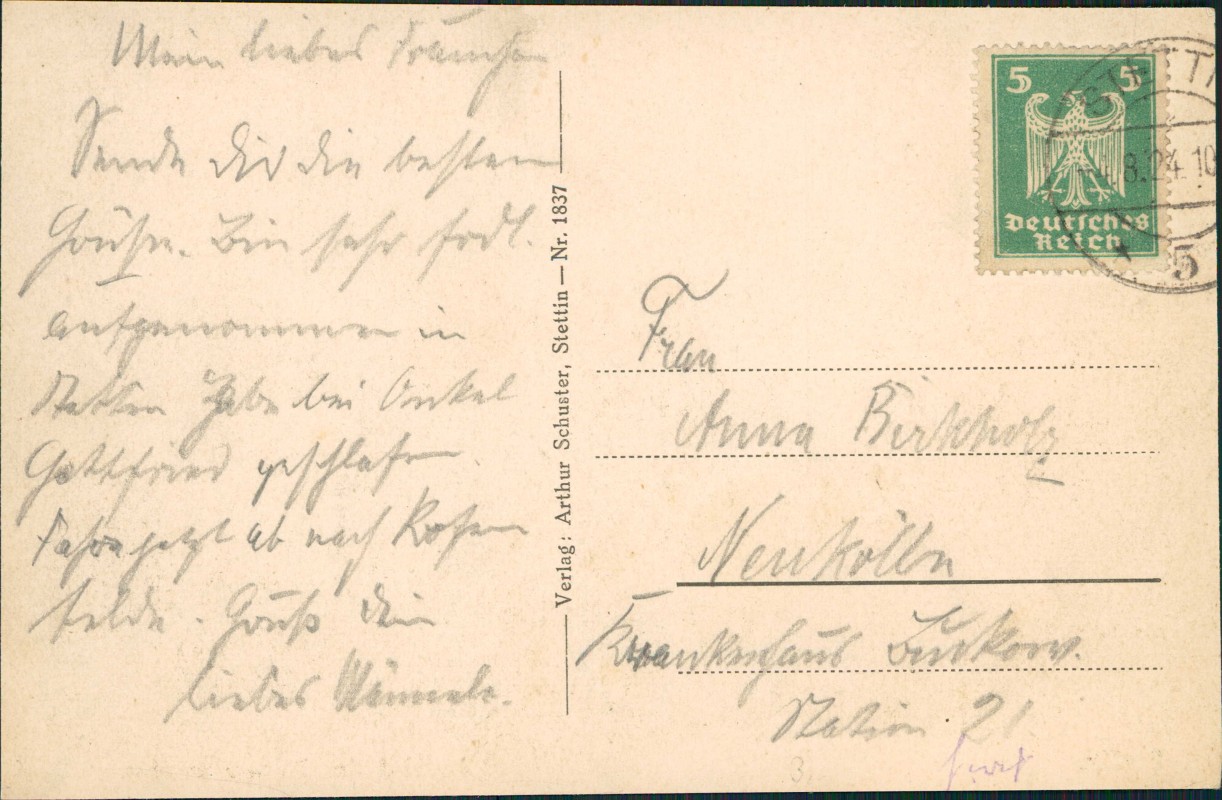 Mein liebes Frauchen
Sende Dir die besten
Grüße. Bin sehr frdl.
aufgenommen in
Stettin Habe bei Onkel
Gottfried geschlafen.
Fahre jetzt ab nach Rosen
felde. Gruß Dein
liebes Männele.
Verlag: Arthur Schuster, Stettin — Nr. 1837
5 5
Deutsches
Reich
STETTI
8.24.10
5
Frau
Anna Birkholz
Neukölln
Krankenhaus Buckow.
Station 21